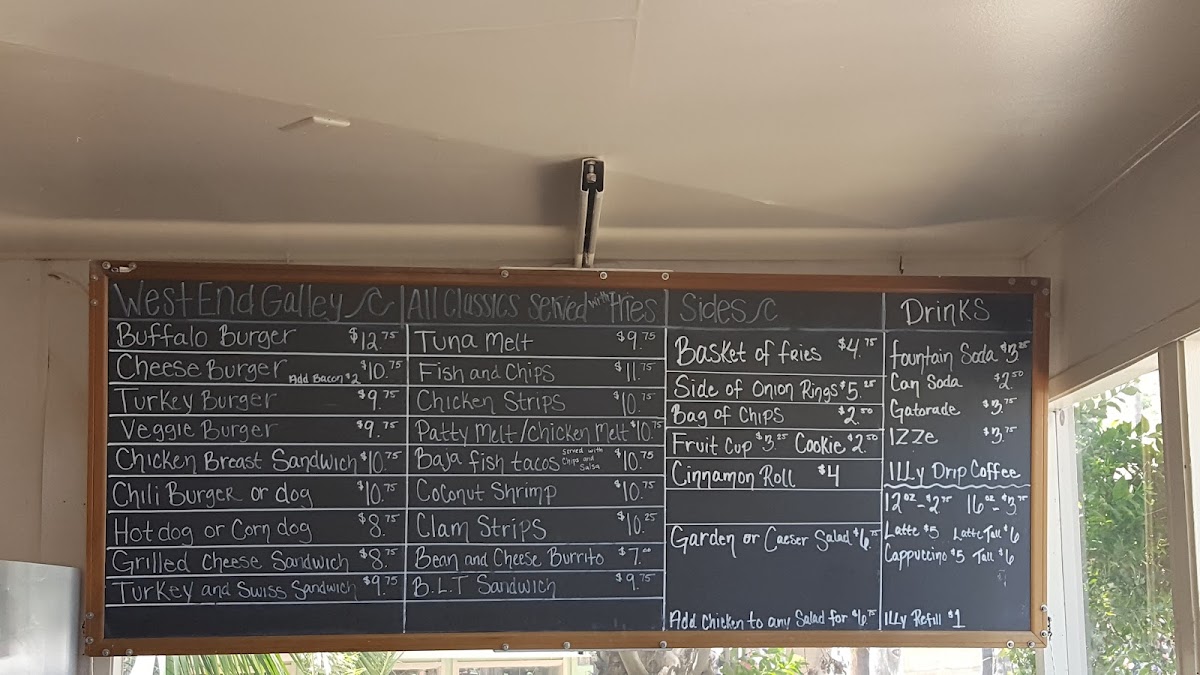 West End Galley
Buffalo Burger $12.75
Cheese Burger Add Bacon $2 $10.75
Turkey Burger $9.75
Veggie Burger $9.75
Chicken Breast Sandwich $10.75
Chili Burger or dog $10.75
Hot dog or Corn dog $8.75
Grilled Cheese Sandwich $8.75
Turkey and Swiss Sandwich $9.75
All Classics served with Fries
Tuna Melt $9.75
Fish and Chips $11.75
Chicken Strips $10.75
Patty Melt/Chicken Melt $10.75
Baja fish tacos served with Chips and Salsa $10.75
Coconut Shrimp $10.75
Clam Strips $10.25
Bean and Cheese Burrito $7.00
B.L.T Sandwich $9.75
Sides
Basket of fries $4.75
Side of Onion Rings $5.25
Bag of Chips $2.50
Fruit Cup $3.25 Cookie $2.50
Cinnamon Roll $4
Garden or Caeser Salad $6.75
Add Chicken to any Salad for $6.75
Drinks
fountain Soda $3.25
Can Soda $2.50
Gatorade $3.75
IZZe $3.75
ILLy Drip Coffee
12oz-$2.75 16oz-$3.75
Latte $5 Latte Tall $6
Cappuccino $5 Tall $6
ILLy Refill $1